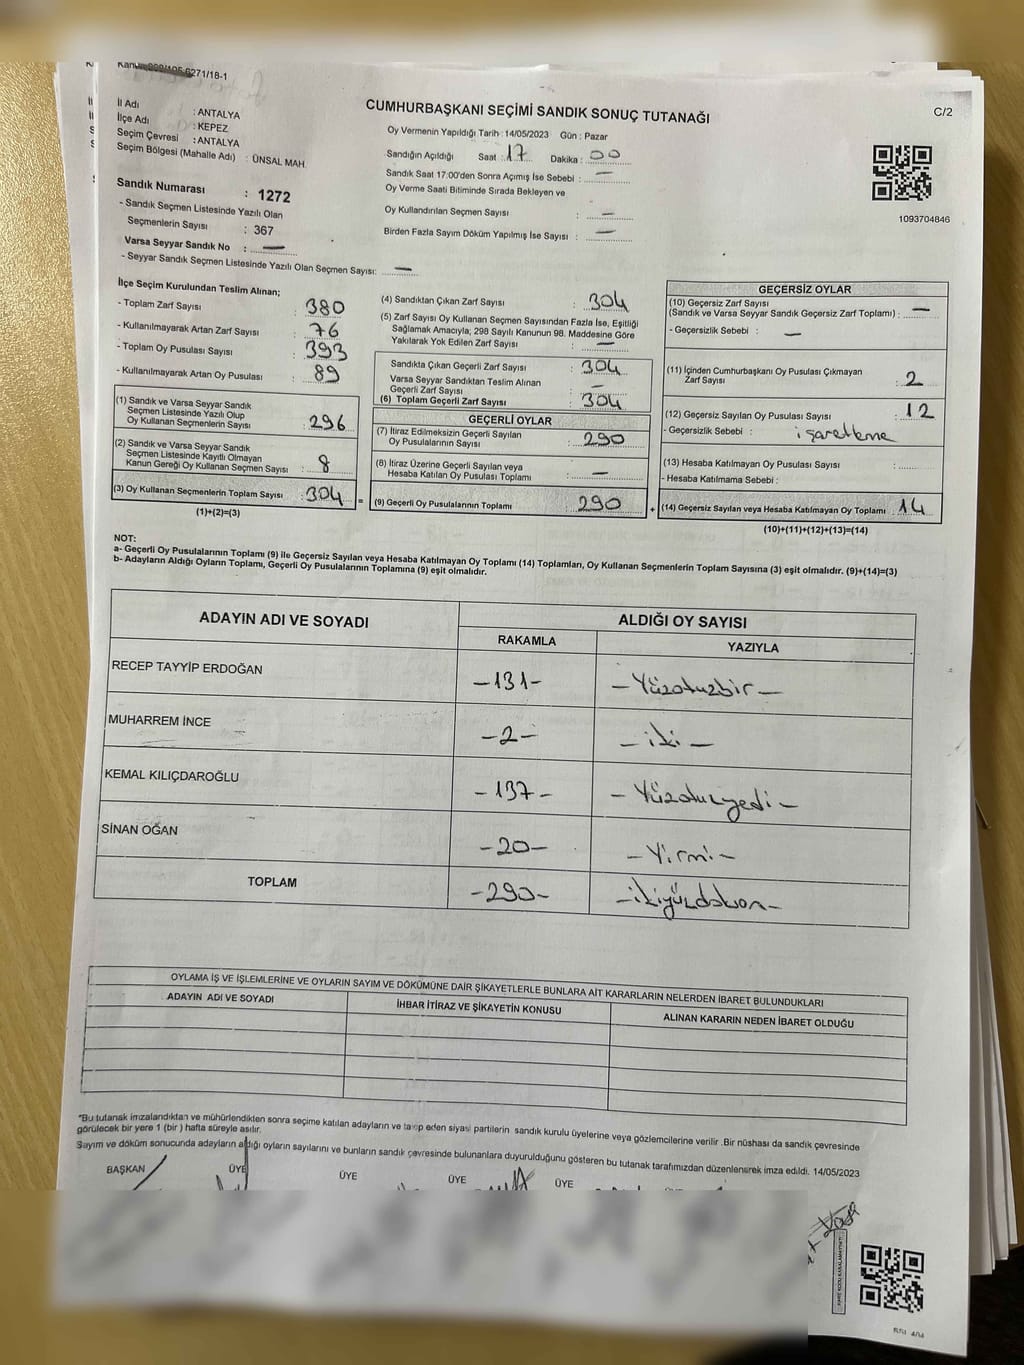 6271/18-1
CUMHURBAŞKANI SEÇİMİ SANDIK SONUÇ TUTANAĞI
C/2
İl Adı : ANTALYA
İlçe Adı : KEPEZ
Seçim Çevresi : ANTALYA
Seçim Bölgesi (Mahalle Adı) : ÜNSAL MAH.
Sandık Numarası : 1272
- Sandık Seçmen Listesinde Yazılı Olan
Seçmenlerin Sayısı : 367
Varsa Seyyar Sandık No : —
- Seyyar Sandık Seçmen Listesinde Yazılı Olan Seçmen Sayısı: —
Oy Vermenin Yapıldığı Tarih : 14/05/2023 Gün : Pazar
Sandığın Açıldığı Saat : 17 Dakika : 00
Sandık Saat 17:00'den Sonra Açımış İse Sebebi : —
Oy Verme Saati Bitiminde Sırada Bekleyen ve
Oy Kullandırılan Seçmen Sayısı : —
Birden Fazla Sayım Döküm Yapılmış İse Sayısı : —
1093704846
İlçe Seçim Kurulundan Teslim Alınan;
- Toplam Zarf Sayısı : 380
- Kullanılmayarak Artan Zarf Sayısı : 76
- Toplam Oy Pusulası Sayısı : 393
- Kullanılmayarak Artan Oy Pusulası : 89
(1) Sandık ve Varsa Seyyar Sandık
Seçmen Listesinde Yazılı Olup
Oy Kullanan Seçmenlerin Sayısı : 296
(2) Sandık ve Varsa Seyyar Sandık
Seçmen Listesinde Kayıtlı Olmayan
Kanun Gereği Oy Kullanan Seçmen Sayısı : 8
(3) Oy Kullanan Seçmenlerin Toplam Sayısı : 304 =
(1)+(2)=(3)
(4) Sandıktan Çıkan Zarf Sayısı : 304
(5) Zarf Sayısı Oy Kullanan Seçmen Sayısından Fazla İse, Eşitliği
Sağlamak Amacıyla; 298 Sayılı Kanunun 98. Maddesine Göre
Yakılarak Yok Edilen Zarf Sayısı : —
Sandıkta Çıkan Geçerli Zarf Sayısı : 304
Varsa Seyyar Sandıktan Teslim Alınan
Geçerli Zarf Sayısı : —
(6) Toplam Geçerli Zarf Sayısı : 304
GEÇERLİ OYLAR
(7) İtiraz Edilmeksizin Geçerli Sayılan
Oy Pusulalarının Sayısı : 290
(8) İtiraz Üzerine Geçerli Sayılan veya
Hesaba Katılan Oy Pusulası Toplamı : —
(9) Geçerli Oy Pusulalarının Toplamı : 290 +
GEÇERSİZ OYLAR
(10) Geçersiz Zarf Sayısı
(Sandık ve Varsa Seyyar Sandık Geçersiz Zarf Toplamı) : —
- Geçersizlik Sebebi : —
(11) İçinden Cumhurbaşkanı Oy Pusulası Çıkmayan
Zarf Sayısı : 2
(12) Geçersiz Sayılan Oy Pusulası Sayısı : 12
- Geçersizlik Sebebi : işaretleme
(13) Hesaba Katılmayan Oy Pusulası Sayısı :
- Hesaba Katılmama Sebebi :
(14) Geçersiz Sayılan veya Hesaba Katılmayan Oy Toplamı : 14
(10)+(11)+(12)+(13)=(14)
NOT:
a- Geçerli Oy Pusulalarının Toplamı (9) ile Geçersiz Sayılan veya Hesaba Katılmayan Oy Toplamı (14) Toplamları, Oy Kullanan Seçmenlerin Toplam Sayısına (3) eşit olmalıdır. (9)+(14)=(3)
b- Adayların Aldığı Oyların Toplamı, Geçerli Oy Pusulalarının Toplamına (9) eşit olmalıdır.
ADAYIN ADI VE SOYADI ALDIĞI OY SAYISI
RAKAMLA YAZIYLA
RECEP TAYYİP ERDOĞAN -131- - Yüzotuzbir -
MUHARREM İNCE -2- - iki -
KEMAL KILIÇDAROĞLU -137- - Yüzotuzyedi -
SİNAN OĞAN -20- - Yirmi -
TOPLAM -290- - ikiyüzdoksan -
OYLAMA İŞ VE İŞLEMLERİNE VE OYLARIN SAYIM VE DÖKÜMÜNE DAİR ŞİKAYETLERLE BUNLARA AİT KARARLARIN NELERDEN İBARET BULUNDUKLARI
ADAYIN ADI VE SOYADI İHBAR İTİRAZ VE ŞİKAYETİN KONUSU ALINAN KARARIN NEDEN İBARET OLDUĞU
*Bu tutanak imzalandıktan ve mühürlendikten sonra seçime katılan adayların ve talep eden siyasi partilerin sandık kurulu üyelerine veya gözlemcilerine verilir .Bir nüshası da sandık çevresinde
görülecek bir yere 1 (bir ) hafta süreyle asılır.
Sayım ve döküm sonucunda adayların aldığı oyların sayılarını ve bunların sandık çevresinde bulunanlara duyurulduğunu gösteren bu tutanak tarafımızdan düzenlenerek imza edildi. 14/05/2023
BAŞKAN ÜYE ÜYE ÜYE ÜYE